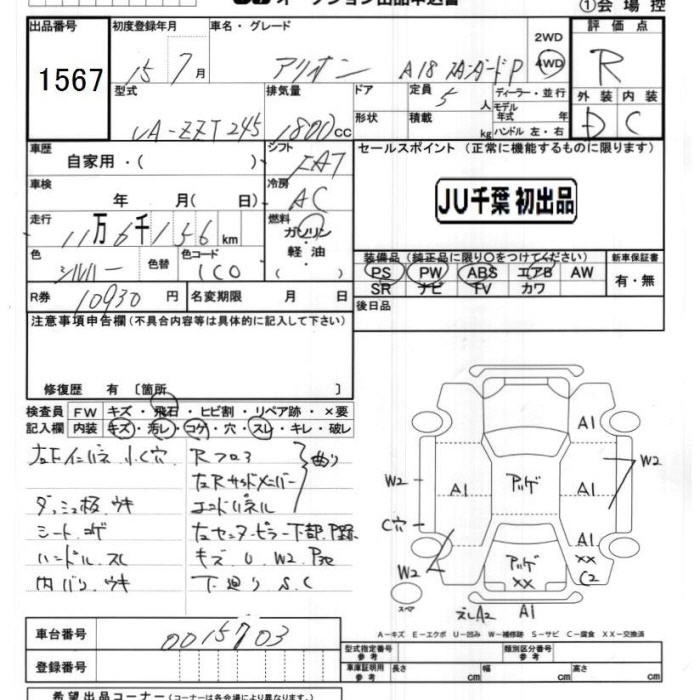 ①会 場 控
出品番号
1567
初度登録年月
15年7月
車名・グレード
アリオン A18 スタンダードP
2WD
4WD
評 価 点
R
外 装 内 装
D C
型式
UA-ZZT245
排気量
1800cc
ドア
形状
定員 5 人
積載 kg
ディーラー・並行
モデル年式 年
ハンドル 左・右
車歴
自家用・( )
シフト
FAT
セールスポイント (正常に機能するものに限ります)
JU千葉 初出品
車検
年 月( 日)
冷房
AC
走行
11万6千156km
燃料
ガソリン
軽・油
色
シルバー
色替
色コード
1C0
装備品 (純正品に限り○をつけてください)
PS PW ABS エアB AW
SR ナビ TV カワ
新車保証書
有・無
R券 10930 円
名変期限 月 日
後日品
注意事項申告欄 (不具合内容等は具体的に記入して下さい)
修復歴 有 〔箇所 〕
検査員記入欄
FW キズ・飛石・ヒビ割・リペア跡・×要
内装 キズ・汚レ・コゲ・穴・スレ・キレ・破レ
左F インパネ 小C穴
ダッシュ板 ウキ
シート コゲ
ハンドル スレ
内バリ ウキ
Rフロア
左Rサイドメンバー
エンドパネル
曲り
左センターピラー下部
キズ U W2
下廻り S.C
A1
W2
W2
A1
アゲ
A1
C穴
A1
XX
C2
アゲ
XX
W2
スペア
ズレA2 A1
A-キズ E-エクボ U-凹み W-補修跡 S-サビ C-腐食 XX-交換済
車台番号
0015703
登録番号
型式指定番号
類別区分番号
車庫証明用参考
長さ cm 幅 cm 高さ cm
希望出品コーナー (コーナーは各会場により異なります。)